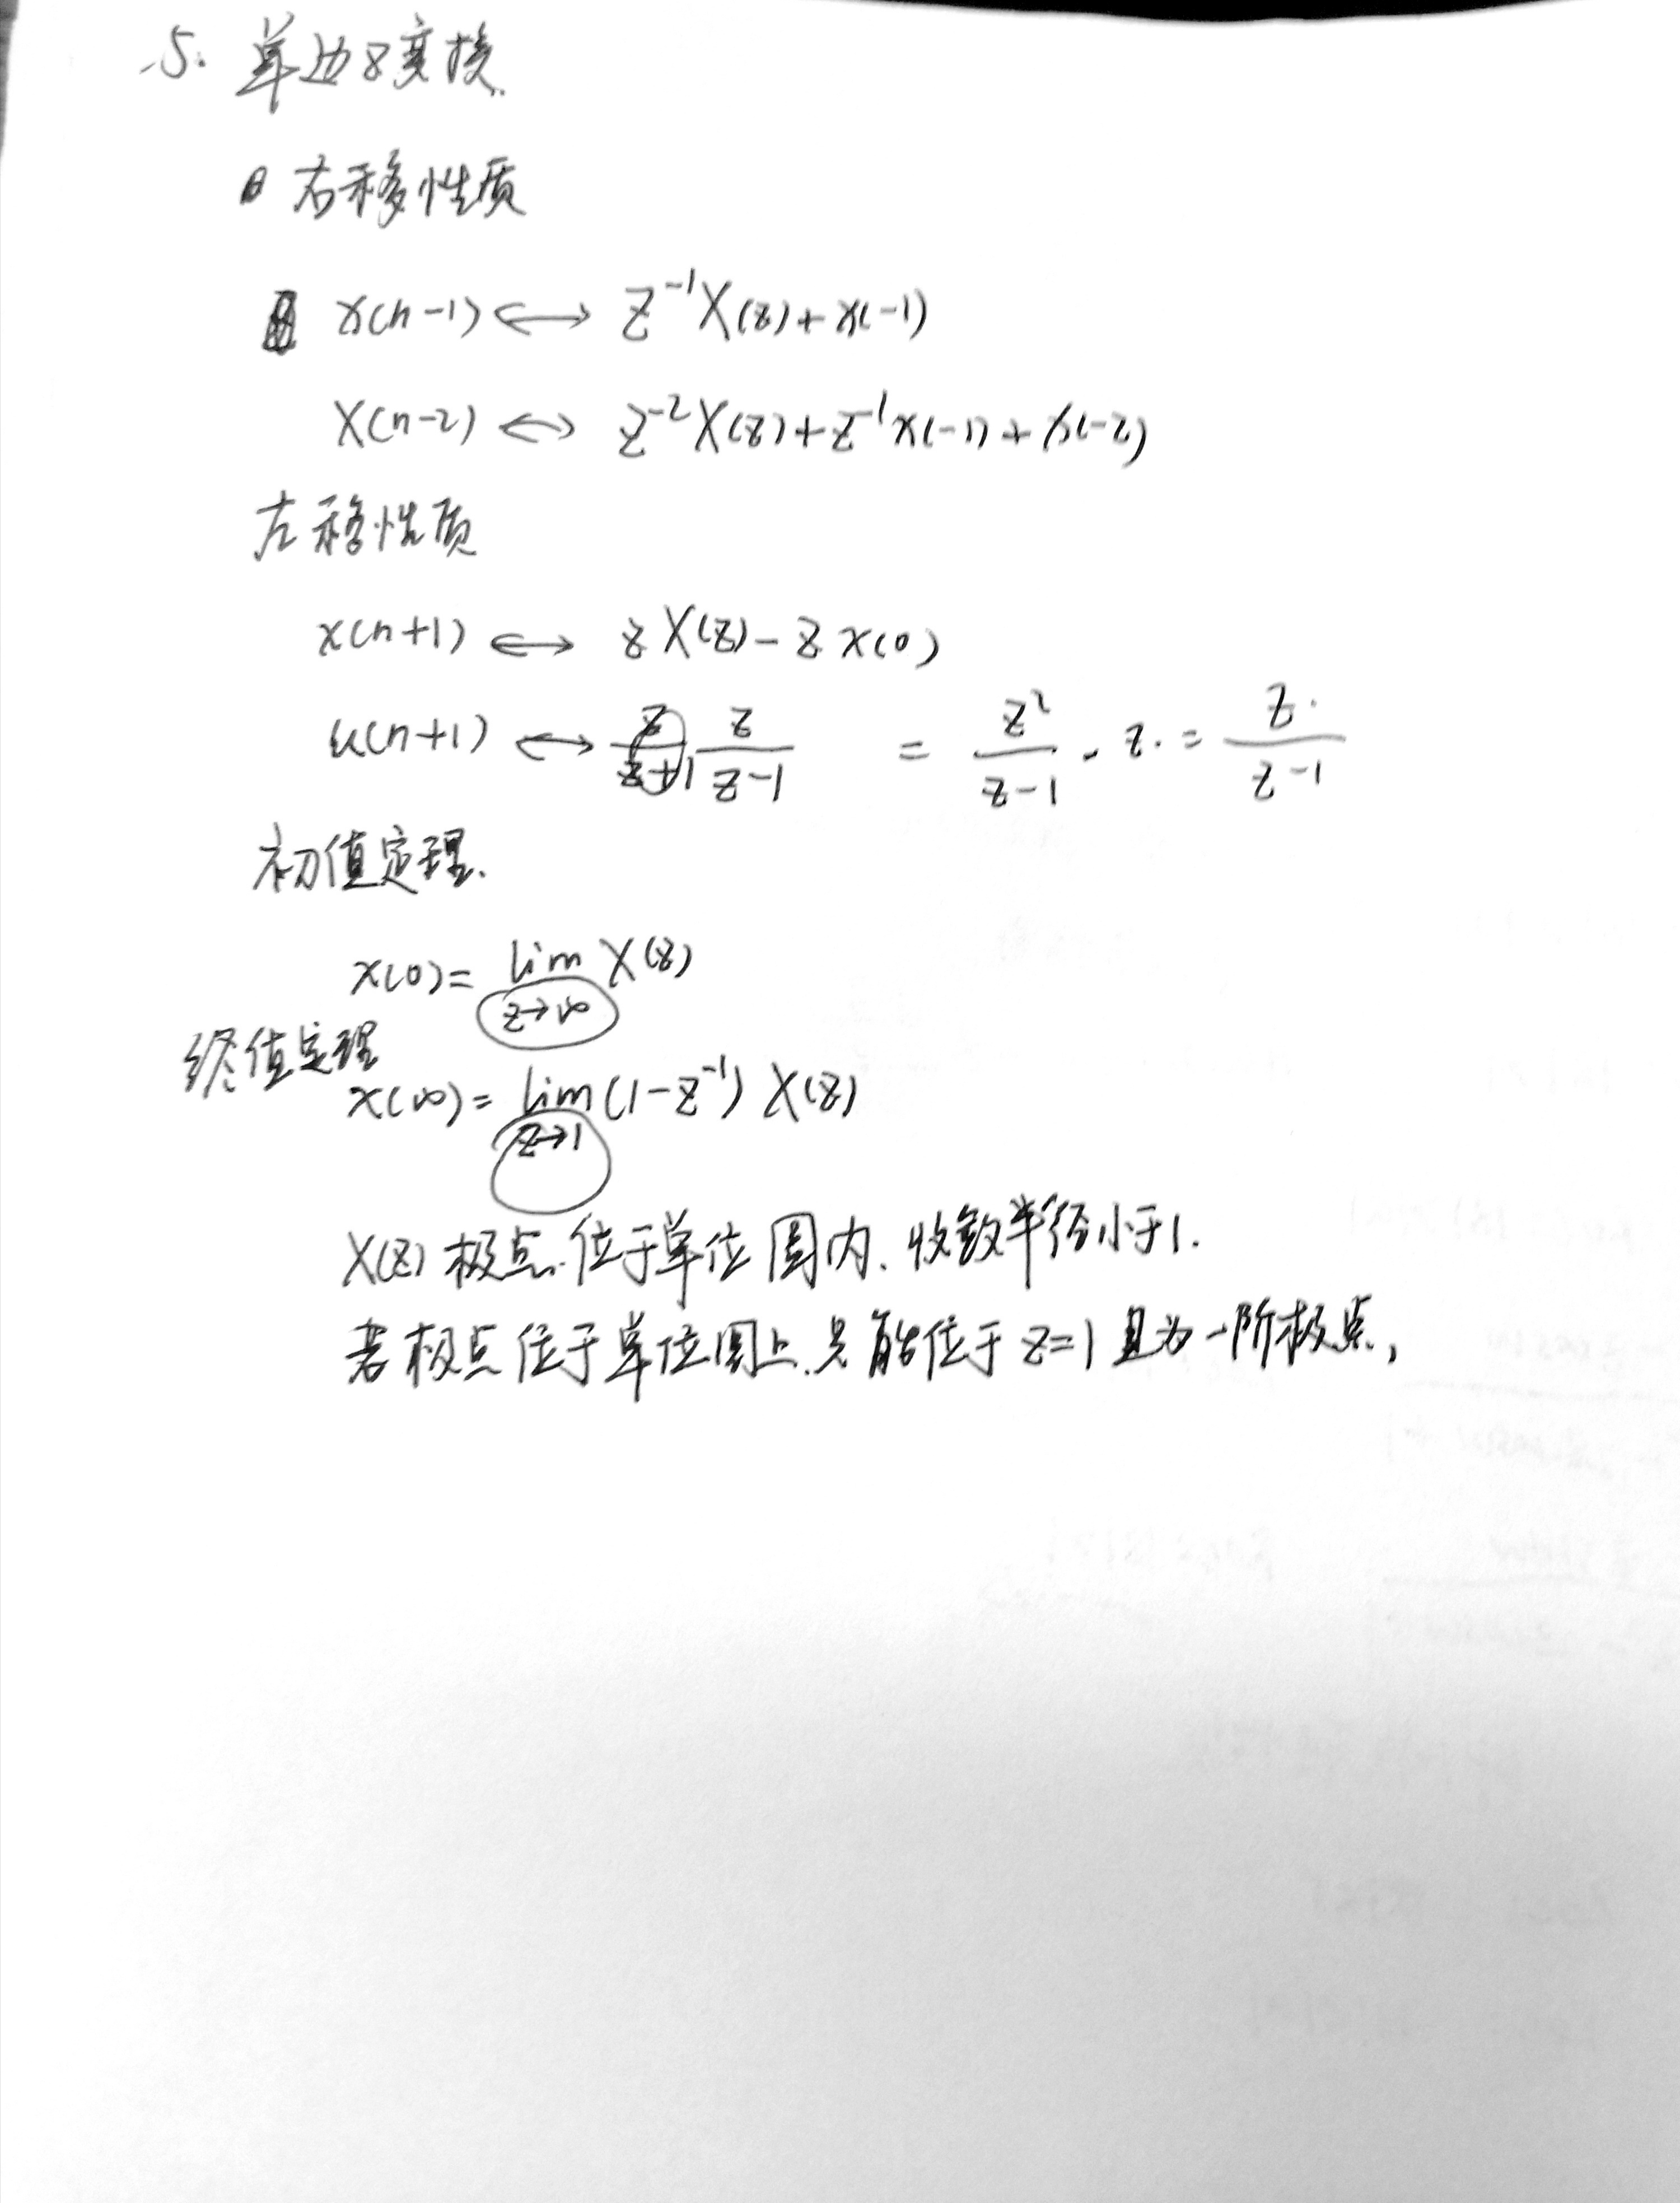 5. 单边z变换.
右移性质
x(n-1) ⟷ z⁻¹X(z)+x(-1)
x(n-2) ⟷ z⁻²X(z)+z⁻¹x(-1)+x(-2)
左移性质
x(n+1) ⟷ zX(z)-zx(0)
u(n+1) ⟷ z/(z-1) = z²/(z-1) - z. = z/(z-1)
初值定理.
x(0)= lim z→∞ X(z)
终值定理
x(∞)= lim z→1 (1-z⁻¹) X(z)
X(z) 极点.位于单位圆内.收敛半径小于1.
若极点位于单位圆上.只能位于z=1且为一阶极点,